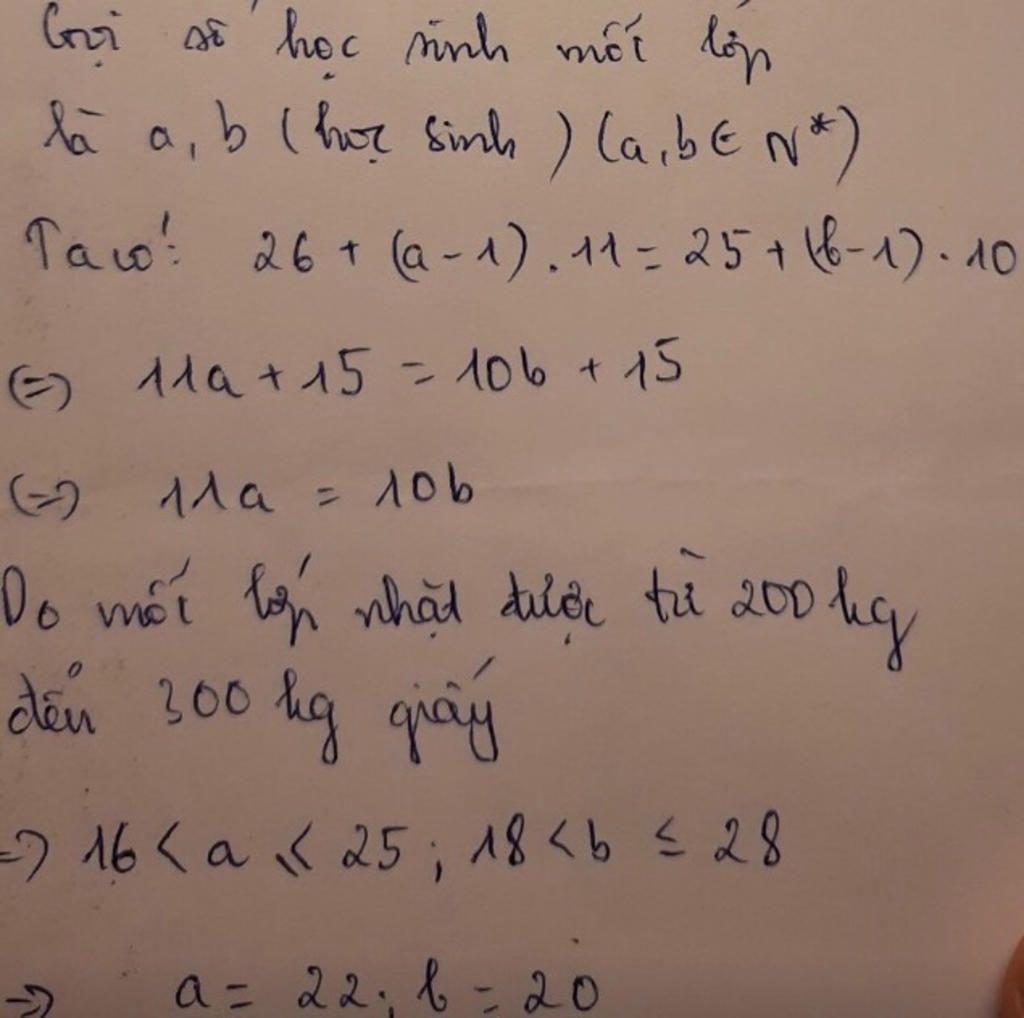 Gọi số học sinh mỗi lớp
là a, b (học sinh) (a, b ∈ N*)
Ta có: 26 + (a - 1) . 11 = 25 + (b - 1) . 10
(=) 11a + 15 = 10b + 15
(=) 11a = 10b
Do mỗi lớp nhặt được từ 200 kg
đến 300 kg giấy
=) 16 < a ≤ 25 ; 18 < b ≤ 28
=) a = 22 ; b = 20